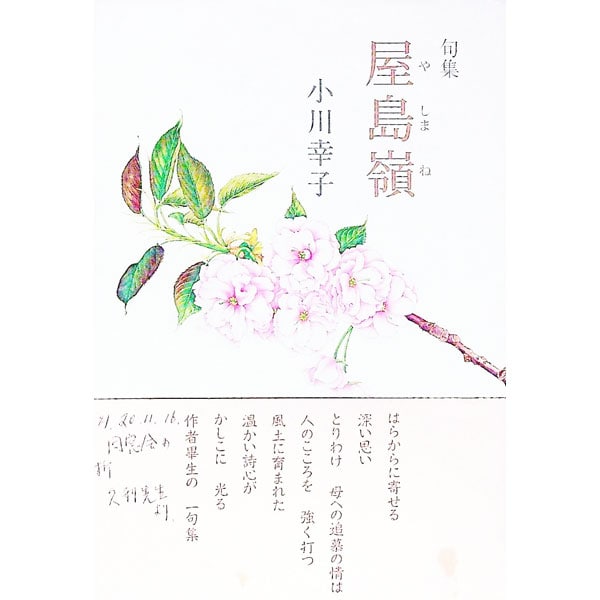 句集
屋島嶺
やしまね
小川幸子
はらからに寄せる
深い思い
とりわけ 母への追慕の情は
人のこころを 強く打つ
風土に育まれた
温かい詩心が
かしこに 光る
作者畢生の 一句集
20.11.16.
同窓会の
折
久利先生
より